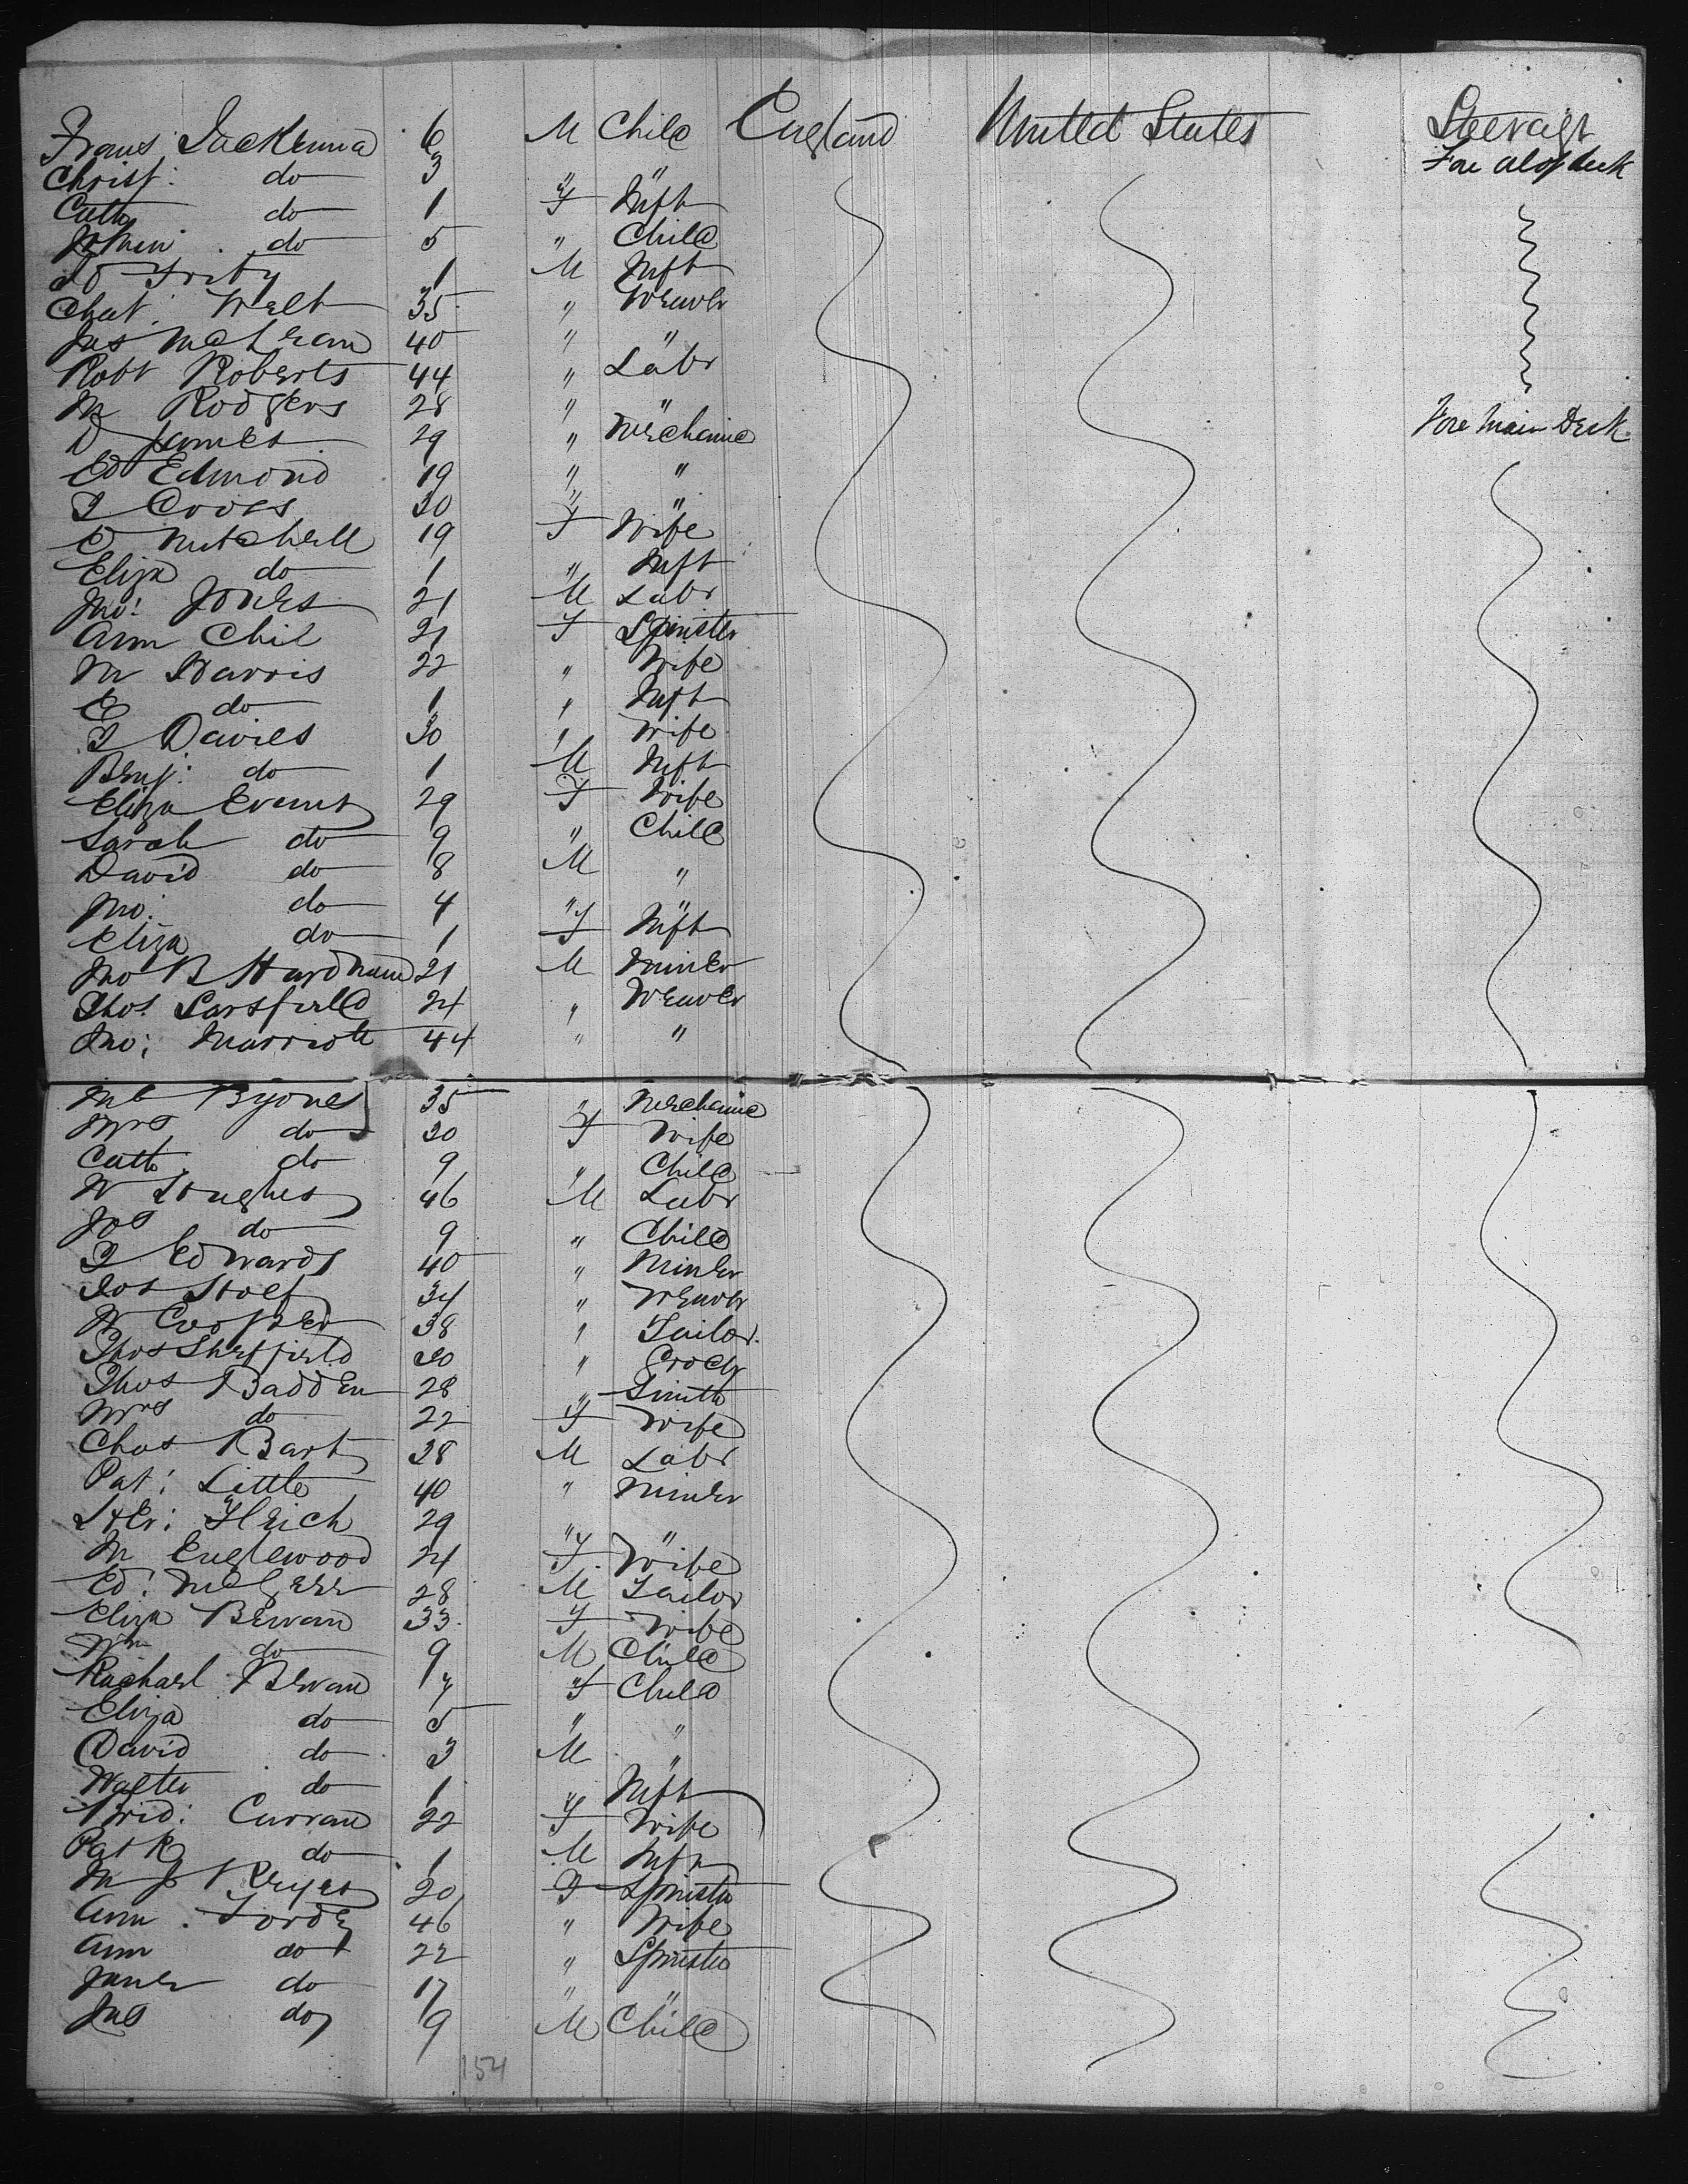 Frans Jackenna 6 M Child England United States Steerage
Christ: do 3 " " Fore Alop deck
Cath do 1 F Inft
do 5 " Child
do Frity 1 M Inft
Chat. Welt 35 " Weaver
Jas McLean 40 " "
Robt Roberts 44 " Labr
M Rodgers 28 " "
D James 29 " Mechanic Fore Main Deck
Ed Edmond 19 " "
T Cooks 30 " "
C Mitchell 19 F Wife
Eliza do 1 " Inft
Jno: Jones 21 M Labr
Ann Chil 21 F Spinster
M Harris 22 " Wife
E do 1 " Inft
T Davies 30 " Wife
Benj: do 1 M Inft
Eliza Evans 29 F Wife
Sarah do 9 " Child
David do 8 M "
Jno: do 4 " "
Eliza do 1 F Inft
Jno B Hardman 21 M Miner
Thos. Sarsfield 24 " Weaver
Jno: Marriott 44 " "
Byones 35 " Mechanic
Mrs do 30 F Wife
Cath. do 9 " Child
W Hughes 46 M Labr
Jos do 9 " Child
T Edwards 40 " Miner
Jos Holt 34 " Weaver
W Cooper 38 " Tailor.
Thos Sheffield 20 " Grocer
Thos Badden 28 " Smith
Mrs do 22 F Wife
Chas Bart 38 M Labr
Pat: Little 40 " Miner
Hleich 29 " "
M Englewood 24 F Wife
Ed: McGee 28 M Tailor
Eliza Bevan 33 F Wife
Wm do 9 M Child
Rachael Bevan 7 F Child
Eliza do 5 " "
David do 3 M "
Walter do 1 " Inft
Brid: Curran 22 F Wife
Patk do 1 M Inft
M J Keyes 20 F Spinster
Ann Forde 46 " Wife
Ann do 22 " Spinster
Jane do 17 " "
Jas do 9 M Child
154